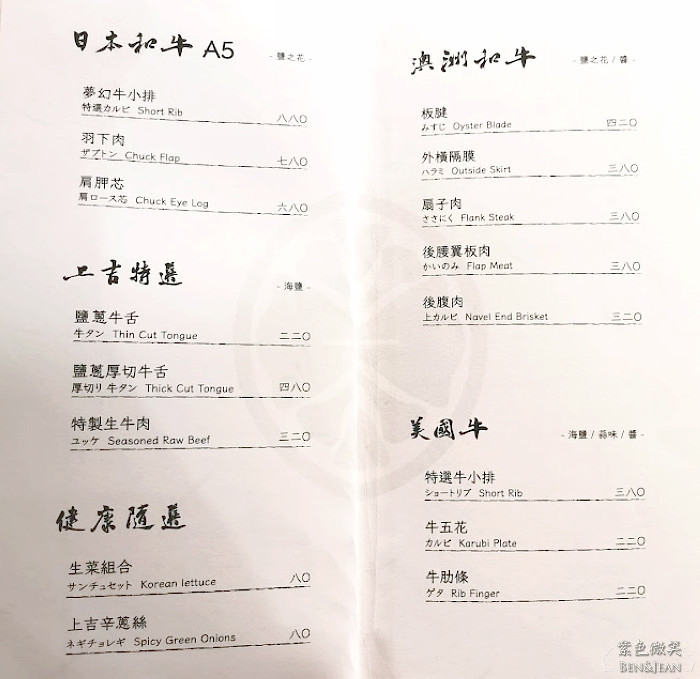 日本和牛 A5 - 鹽之花 -
夢幻牛小排
特選カルビ Short Rib 八八〇
羽下肉
ザブトン Chuck Flap 七八〇
肩胛芯
肩ロース芯 Chuck Eye Log 六八〇
上吉特選 - 海鹽 -
鹽蔥牛舌
牛タン Thin Cut Tongue 二二〇
鹽蔥厚切牛舌
厚切り牛タン Thick Cut Tongue 四八〇
特製生牛肉
ユッケ Seasoned Raw Beef 三二〇
健康隨選
生菜組合
サンチュセット Korean lettuce 八〇
上吉辛蔥絲
ネギチョレギ Spicy Green Onions 八〇
澳洲和牛 - 鹽之花 / 醬 -
板腱
みすじ Oyster Blade 四二〇
外橫隔膜
ハラミ Outside Skirt 三八〇
扇子肉
ささにく Flank Steak 三八〇
後腰翼板肉
かいのみ Flap Meat 三八〇
後腹肉
上カルビ Navel End Brisket 三二〇
美國牛 - 海鹽 / 蒜味 / 醬 -
特選牛小排
ショートリブ Short Rib 三八〇
牛五花
カルビ Karubi Plate 二二〇
牛肋條
ゲタ Rib Finger 二二〇
紫色微笑
BEN&JEAN